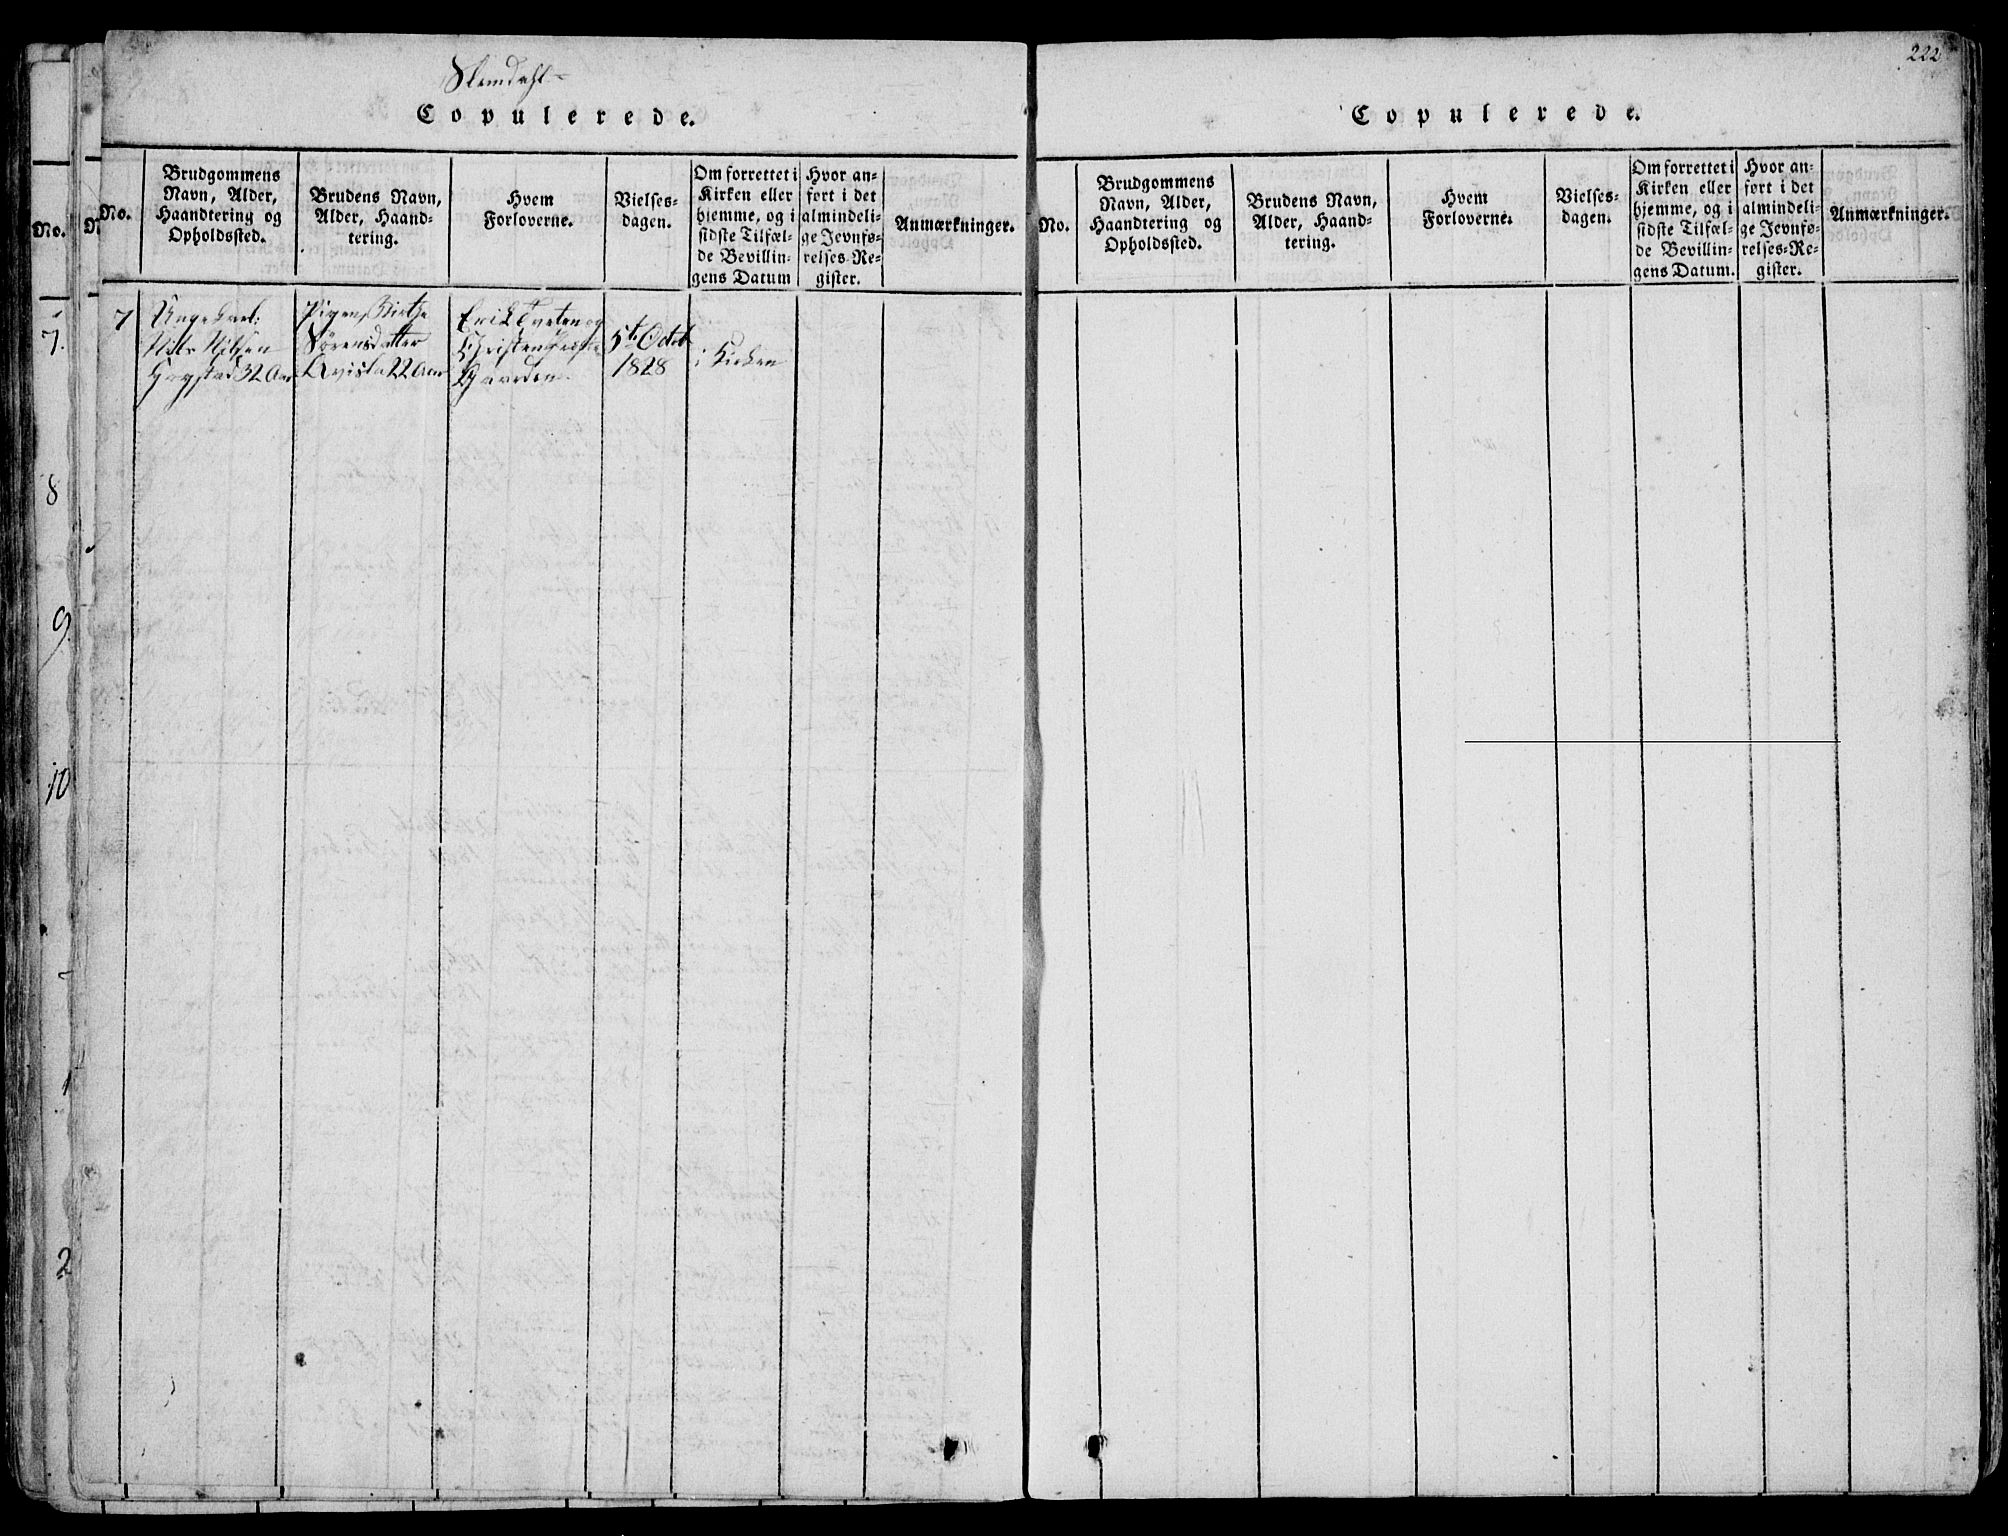 222
Slemdahl
Copulerede.
No.
Brudgommens
Navn, Alder,
Haandtering og
Opholdssted.
Brudens Navn,
Alder, Haand-
tering.
Hvem
Forloverne.
Vielses-
dagen.
Om forrettet i
Kirken eller
hjemme, og i
sidste Tilfæl-
de Bevillin-
gens Datum
Hvor an-
ført i det
almindeli-
ge Jevnfø-
relses-Re-
gister.
Anmærkninger.
7
Ungekarl:
Niels Nilsen
32 Aar
Pigen
Sørensdatter
22 Aar
Erik Tveten og
Christen
Gaarden
5te Octob
1828
i Kirken
Copulerede.
No.
Brudgommens
Navn, Alder,
Haandtering og
Opholdssted.
Brudens Navn,
Alder, Haand-
tering.
Hvem
Forloverne.
Vielses-
dagen.
Om forrettet i
Kirken eller
hjemme, og i
sidste Tilfæl-
de Bevillin-
gens Datum.
Hvor an-
ført i det
almindeli-
ge Jevnfø-
relses-Re-
gister.
Anmærkninger.
No.
7.
8
9
10
1
2